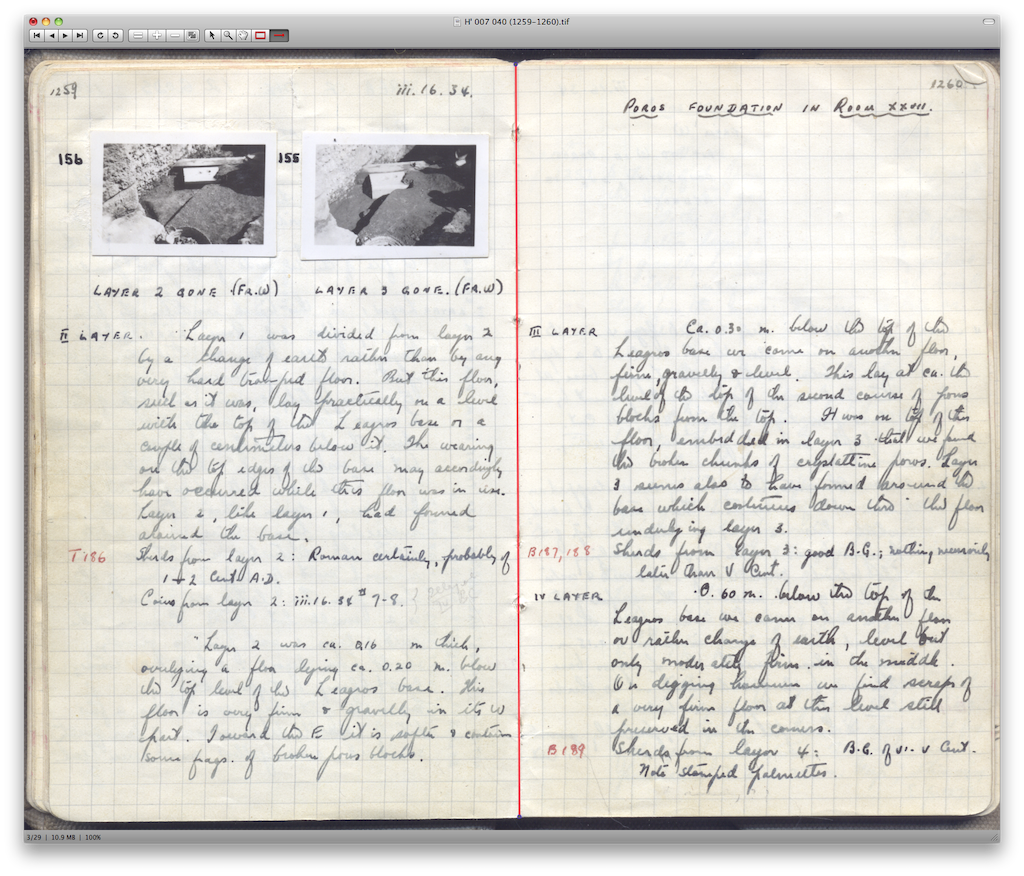 H' 007 040 (1259-1260).tif
1259
iii.16.34.
156
155
LAYER 2 GONE. (FR.W)
LAYER 3 GONE. (FR.W)
II LAYER. Layer 1 was divided from layer 2
by a change of earth rather than by any
very hard tramped floor. But this floor,
such as it was, lay practically on a level
with the top of the Leagros base or a
couple of centimeters below it. The wearing
on the top edges of the base may accordingly
have occurred while this floor was in use.
Layer 2, like layer 1, had formed
around the base.
T 186 Sherds from layer 2: Roman certainly, probably of
1-2 Cent A.D.
Coins from layer 2: iii.16.34 # 7-8.
Layer 2 was ca. 0.16 m thick,
overlying a floor lying ca. 0.20 m. below
the top level of the Leagros base. This
floor is very firm & gravelly in its W
part. Toward the E it is softer & contains
some frags. of broken poros blocks.
1260
POROS FOUNDATION IN ROOM XXVII.
III LAYER Ca. 0.30 m. below the top of the
Leagros base we came on another floor,
firm, gravelly & level. This lay at ca. the
level of the top of the second course of poros
blocks from the top. It was on top of this
floor, embedded in layer 3 that we found
the broken chunks of crystalline poros. Layer
3 seems also to have formed around the
base which continues down thro the floor
underlying layer 3.
B187,188 Sherds from layer 3: good B.G.; nothing necessarily
later than V Cent.
IV LAYER 0.60 m. below the top of the
Leagros base we came on another floor
or rather change of earth, level but
only moderately firm in the middle.
On digging however we find scraps of
a very firm floor at this level still
preserved in the corners.
B 189 Sherds from layer 4: B.G. of VI-V Cent.
Note stamped palmettes.
3/29 | 10.9 MB | 100%